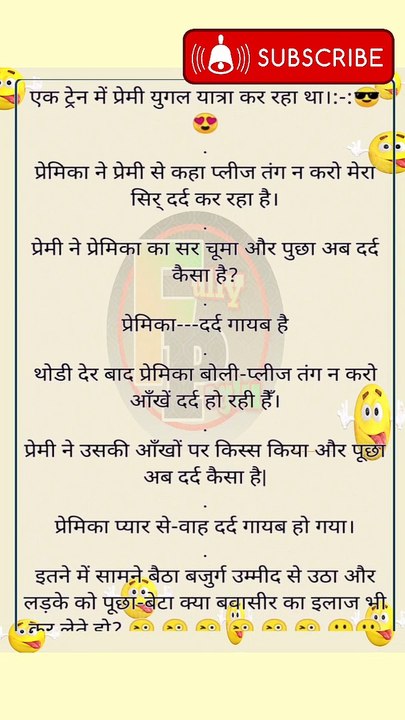 SUBSCRIBE
एक ट्रेन में प्रेमी युगल यात्रा कर रहा था।:-:😎
😍
.
प्रेमिका ने प्रेमी से कहा प्लीज तंग न करो मेरा
सिर् दर्द कर रहा है।
.
प्रेमी ने प्रेमिका का सर चूमा और पुछा अब दर्द
कैसा है?
.
प्रेमिका---दर्द गायब है
.
थोडी देर बाद प्रेमिका बोली-प्लीज तंग न करो
आँखें दर्द हो रही हैँ।
.
प्रेमी ने उसकी आँखों पर किस्स किया और पूछा
अब दर्द कैसा है|
.
प्रेमिका प्यार से-वाह दर्द गायब हो गया।
.
इतने में सामने बैठा बजुर्ग उम्मीद से उठा और
लड़के को पूछा-बेटा क्या बवासीर का इलाज भी
कर लेते हो? 😜😜😜😜😜😜